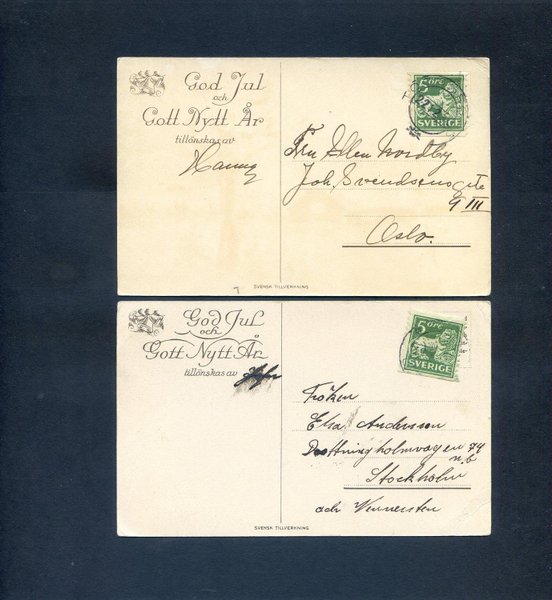 God Jul
och
Gott Nytt År
tillönskas av
Hanna
5 ÖRE
SVERIGE
Fru Ellen Nordby
Joh. Svendsens gte
9 III
Oslo.
SVENSK TILLVERKNING
God Jul
och
Gott Nytt År
tillönskas av
5 ÖRE
SVERIGE
Fröken
Elsa Andersson
Drottningholmvägen 74
n. b.
Stockholm
adr Wennersten
SVENSK TILLVERKNING